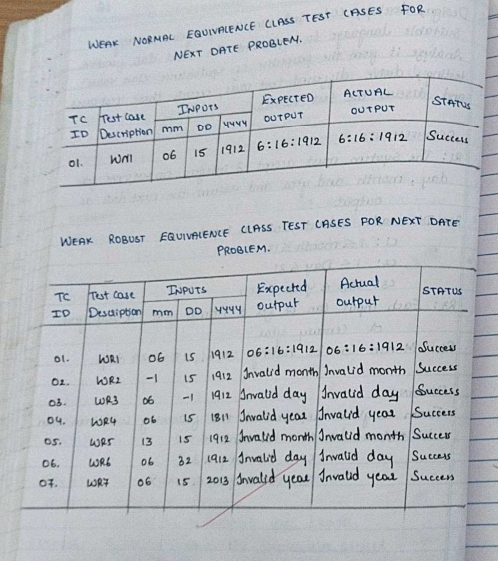 WEAK NORMAL EQUIVALENCE CLASS TEST CASES FOR
NEXT DATE PROBLEM.
TC ID Test Case Description INPUTS mm DD YYYY EXPECTED OUTPUT ACTUAL OUTPUT STATUS
01. WN1 06 15 1912 6:16:1912 6:16:1912 Success
WEAK ROBUST EQUIVALENCE CLASS TEST CASES FOR NEXT DATE
PROBLEM.
TC ID Test Case Description INPUTS mm DD YYYY Expected output Actual output STATUS
01. WR1 06 15 1912 06:16:1912 06:16:1912 Success
02. WR2 -1 15 1912 Invalid month Invalid month Success
03. WR3 06 -1 1912 Invalid day Invalid day Success
04. WR4 06 15 1811 Invalid year Invalid year Success
05. WR5 13 15 1912 Invalid month Invalid month Success
06. WR6 06 32 1912 Invalid day Invalid day Success
07. WR7 06 15 2013 Invalid year Invalid year Success